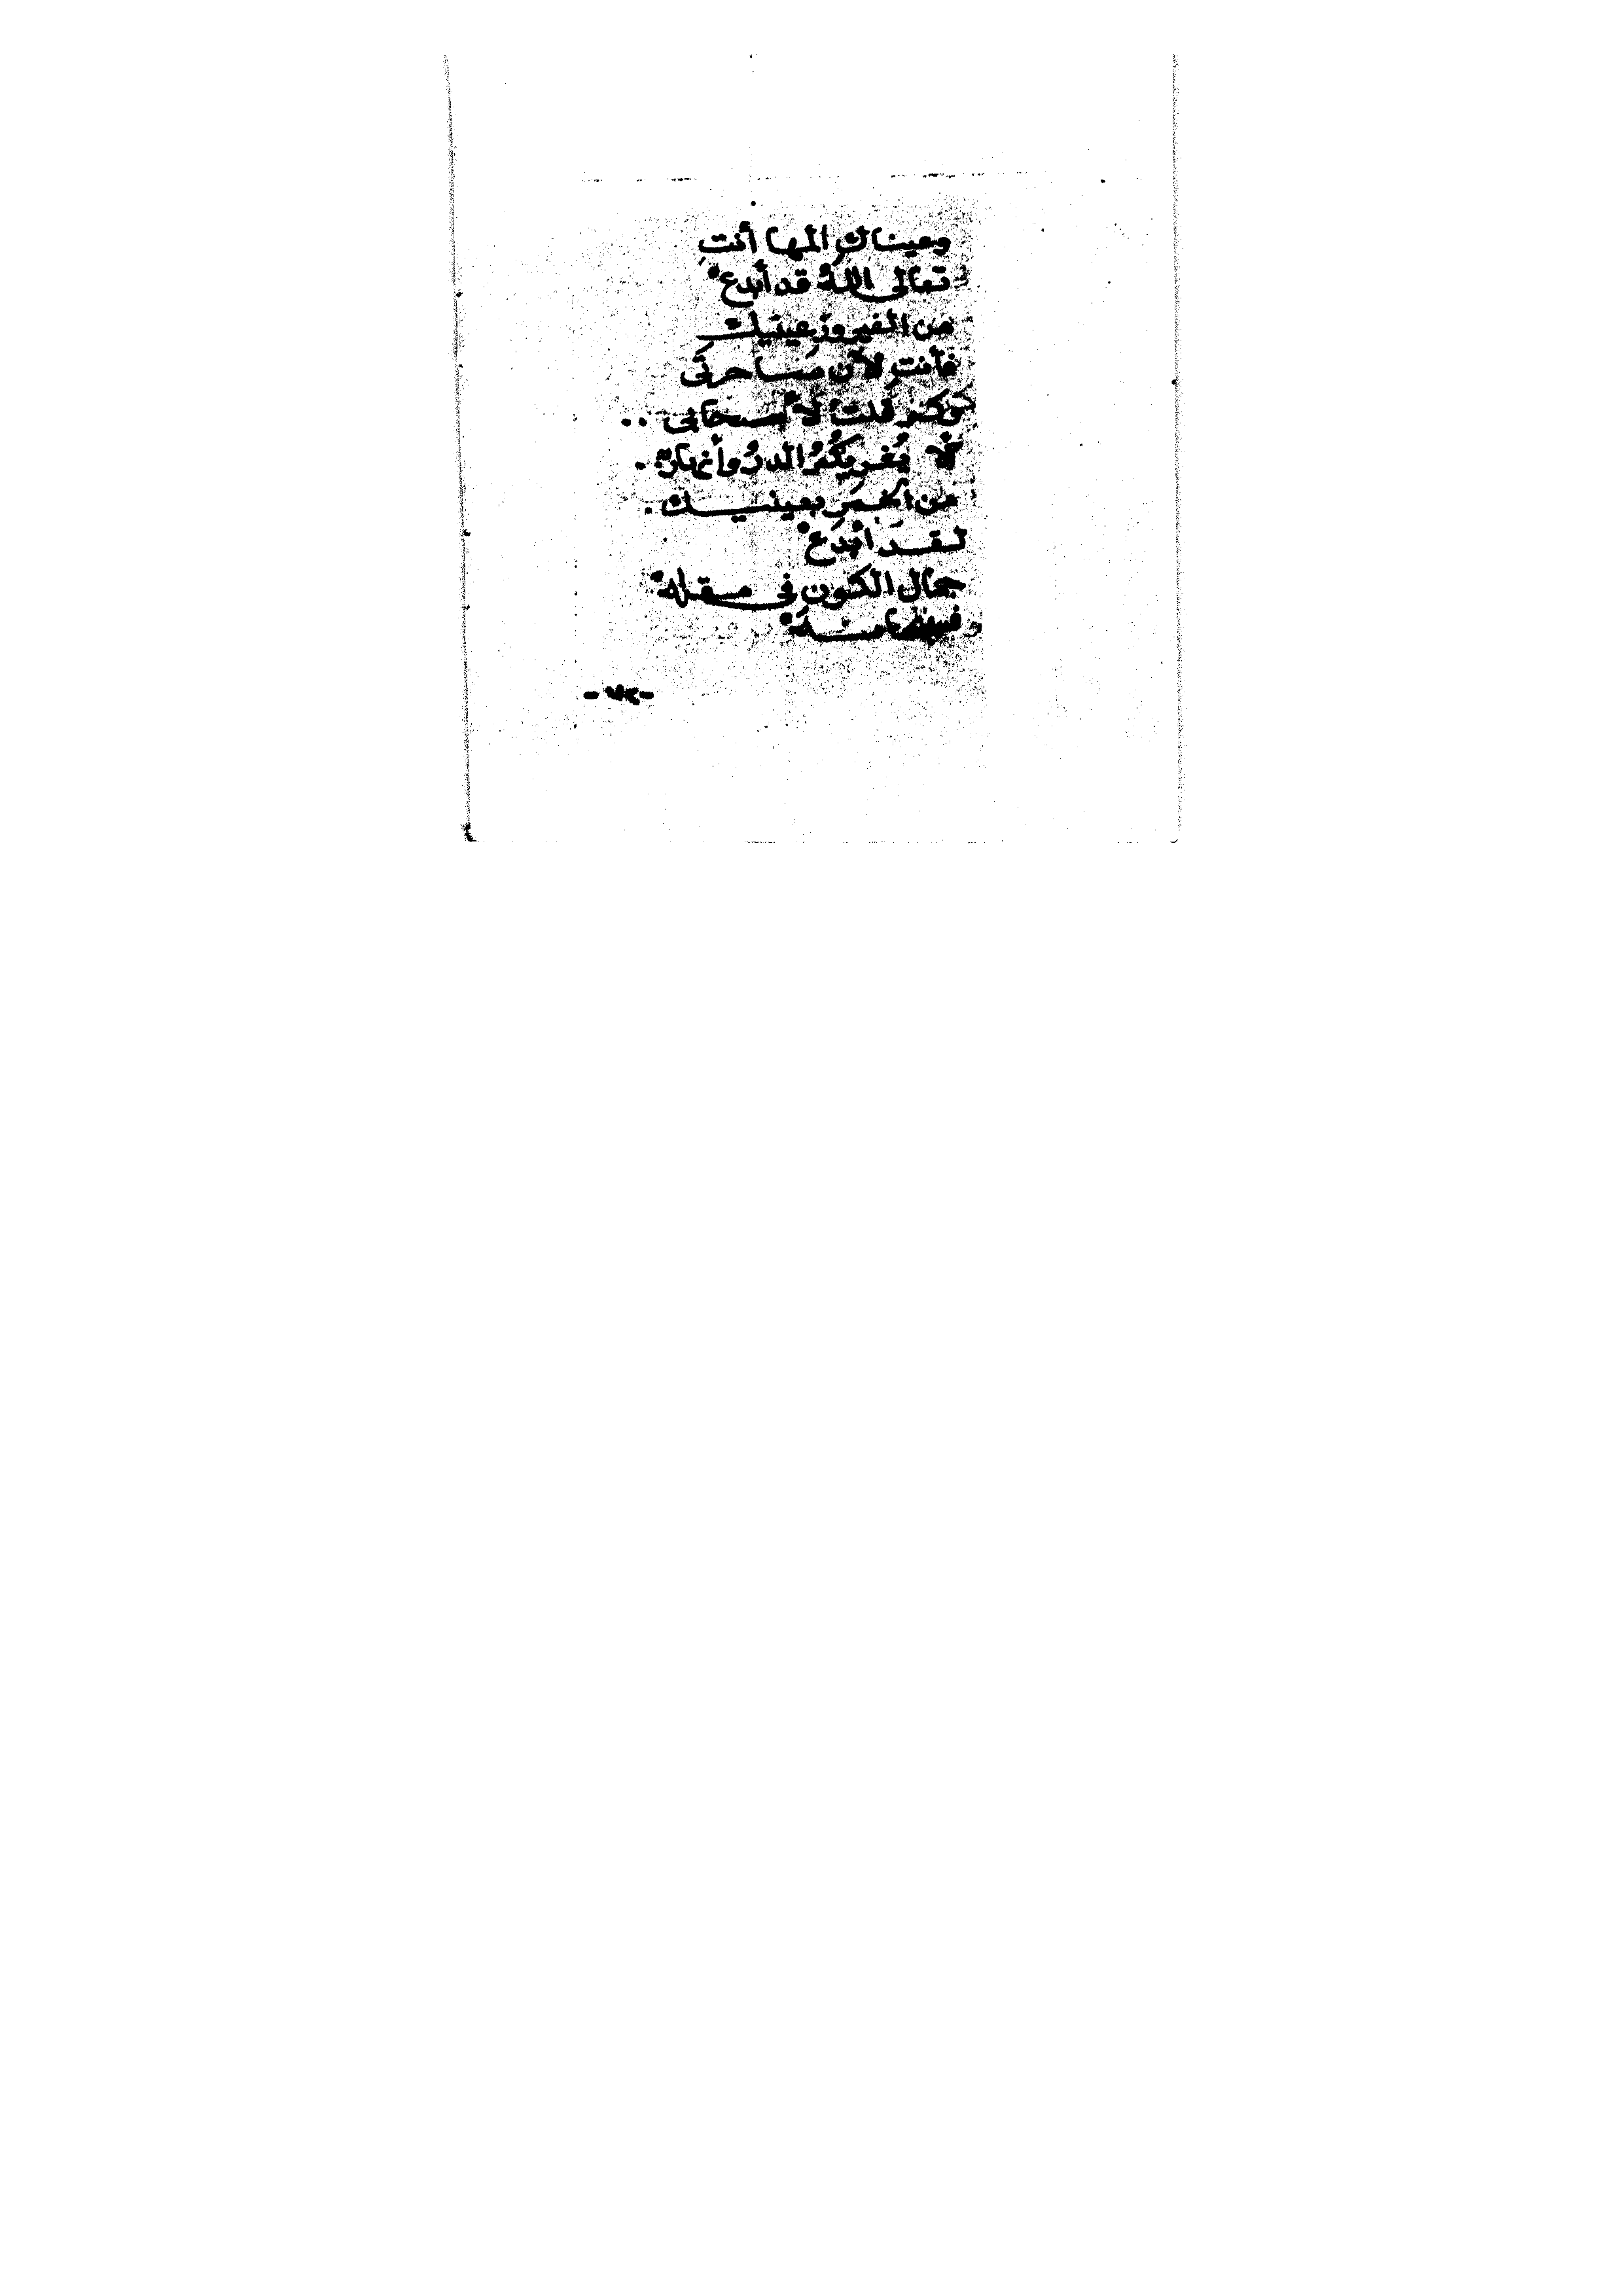 وعيناكِ المها أنتِ
تعالى اللهُ قد أبدعْ
من الفيروز عينيك
فأنتِ لآن ساحرتى
وكم قلتُ لأصحابى ..
ألا يُغريكُمُ الدرُّ وأغياره .
من الخمرِ بعينيك .
لقد أبدعْ
جمال الكون في مقله